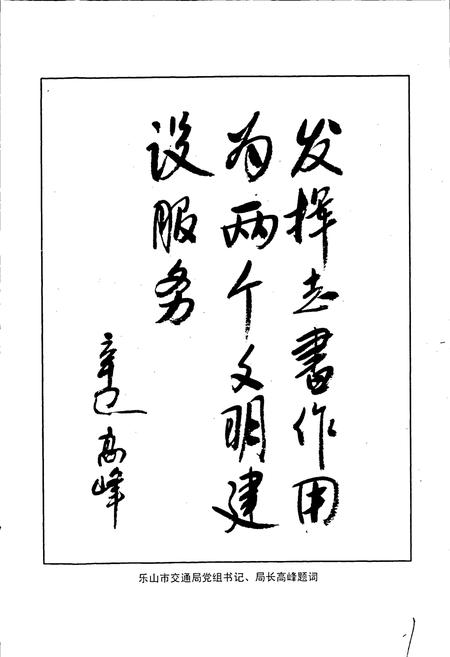 发挥志書作用
为两个文明建
设服务
辛巳 高峰
乐山市交通局党组书记、局长高峰题词